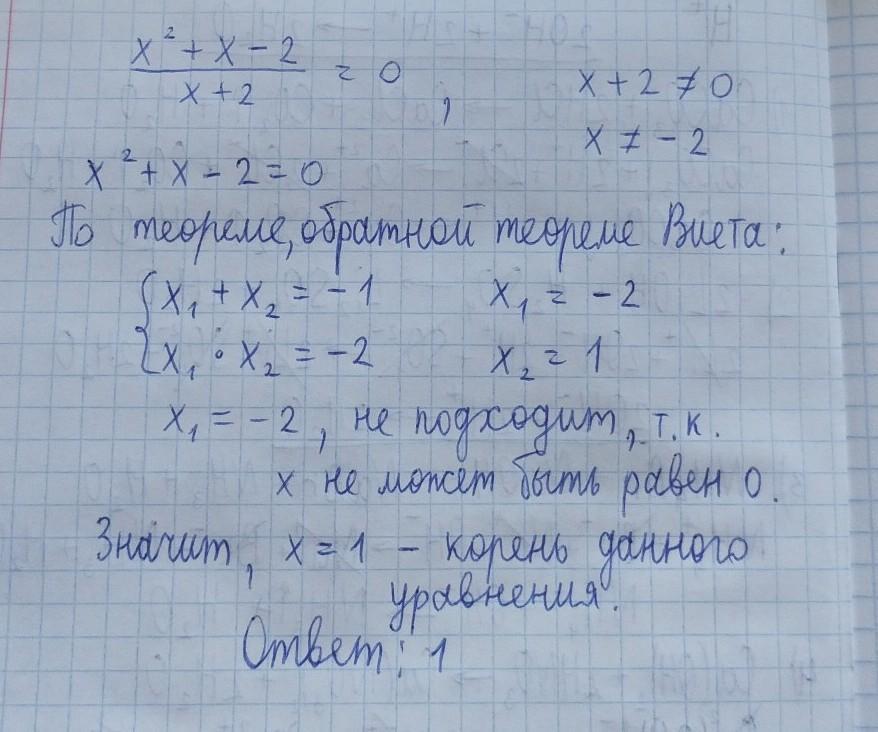 x² + x - 2 / x + 2 = 0 ,
x + 2 ≠ 0
x ≠ - 2
x² + x - 2 = 0
По теореме, обратной теореме Виета:
{ x₁ + x₂ = - 1    x₁ = - 2
{ x₁ · x₂ = - 2    x₂ = 1
x₁ = - 2 , не подходит, т.к.
x не может быть равен 0.
Значит, x = 1 - корень данного
уравнения.
Ответ: 1